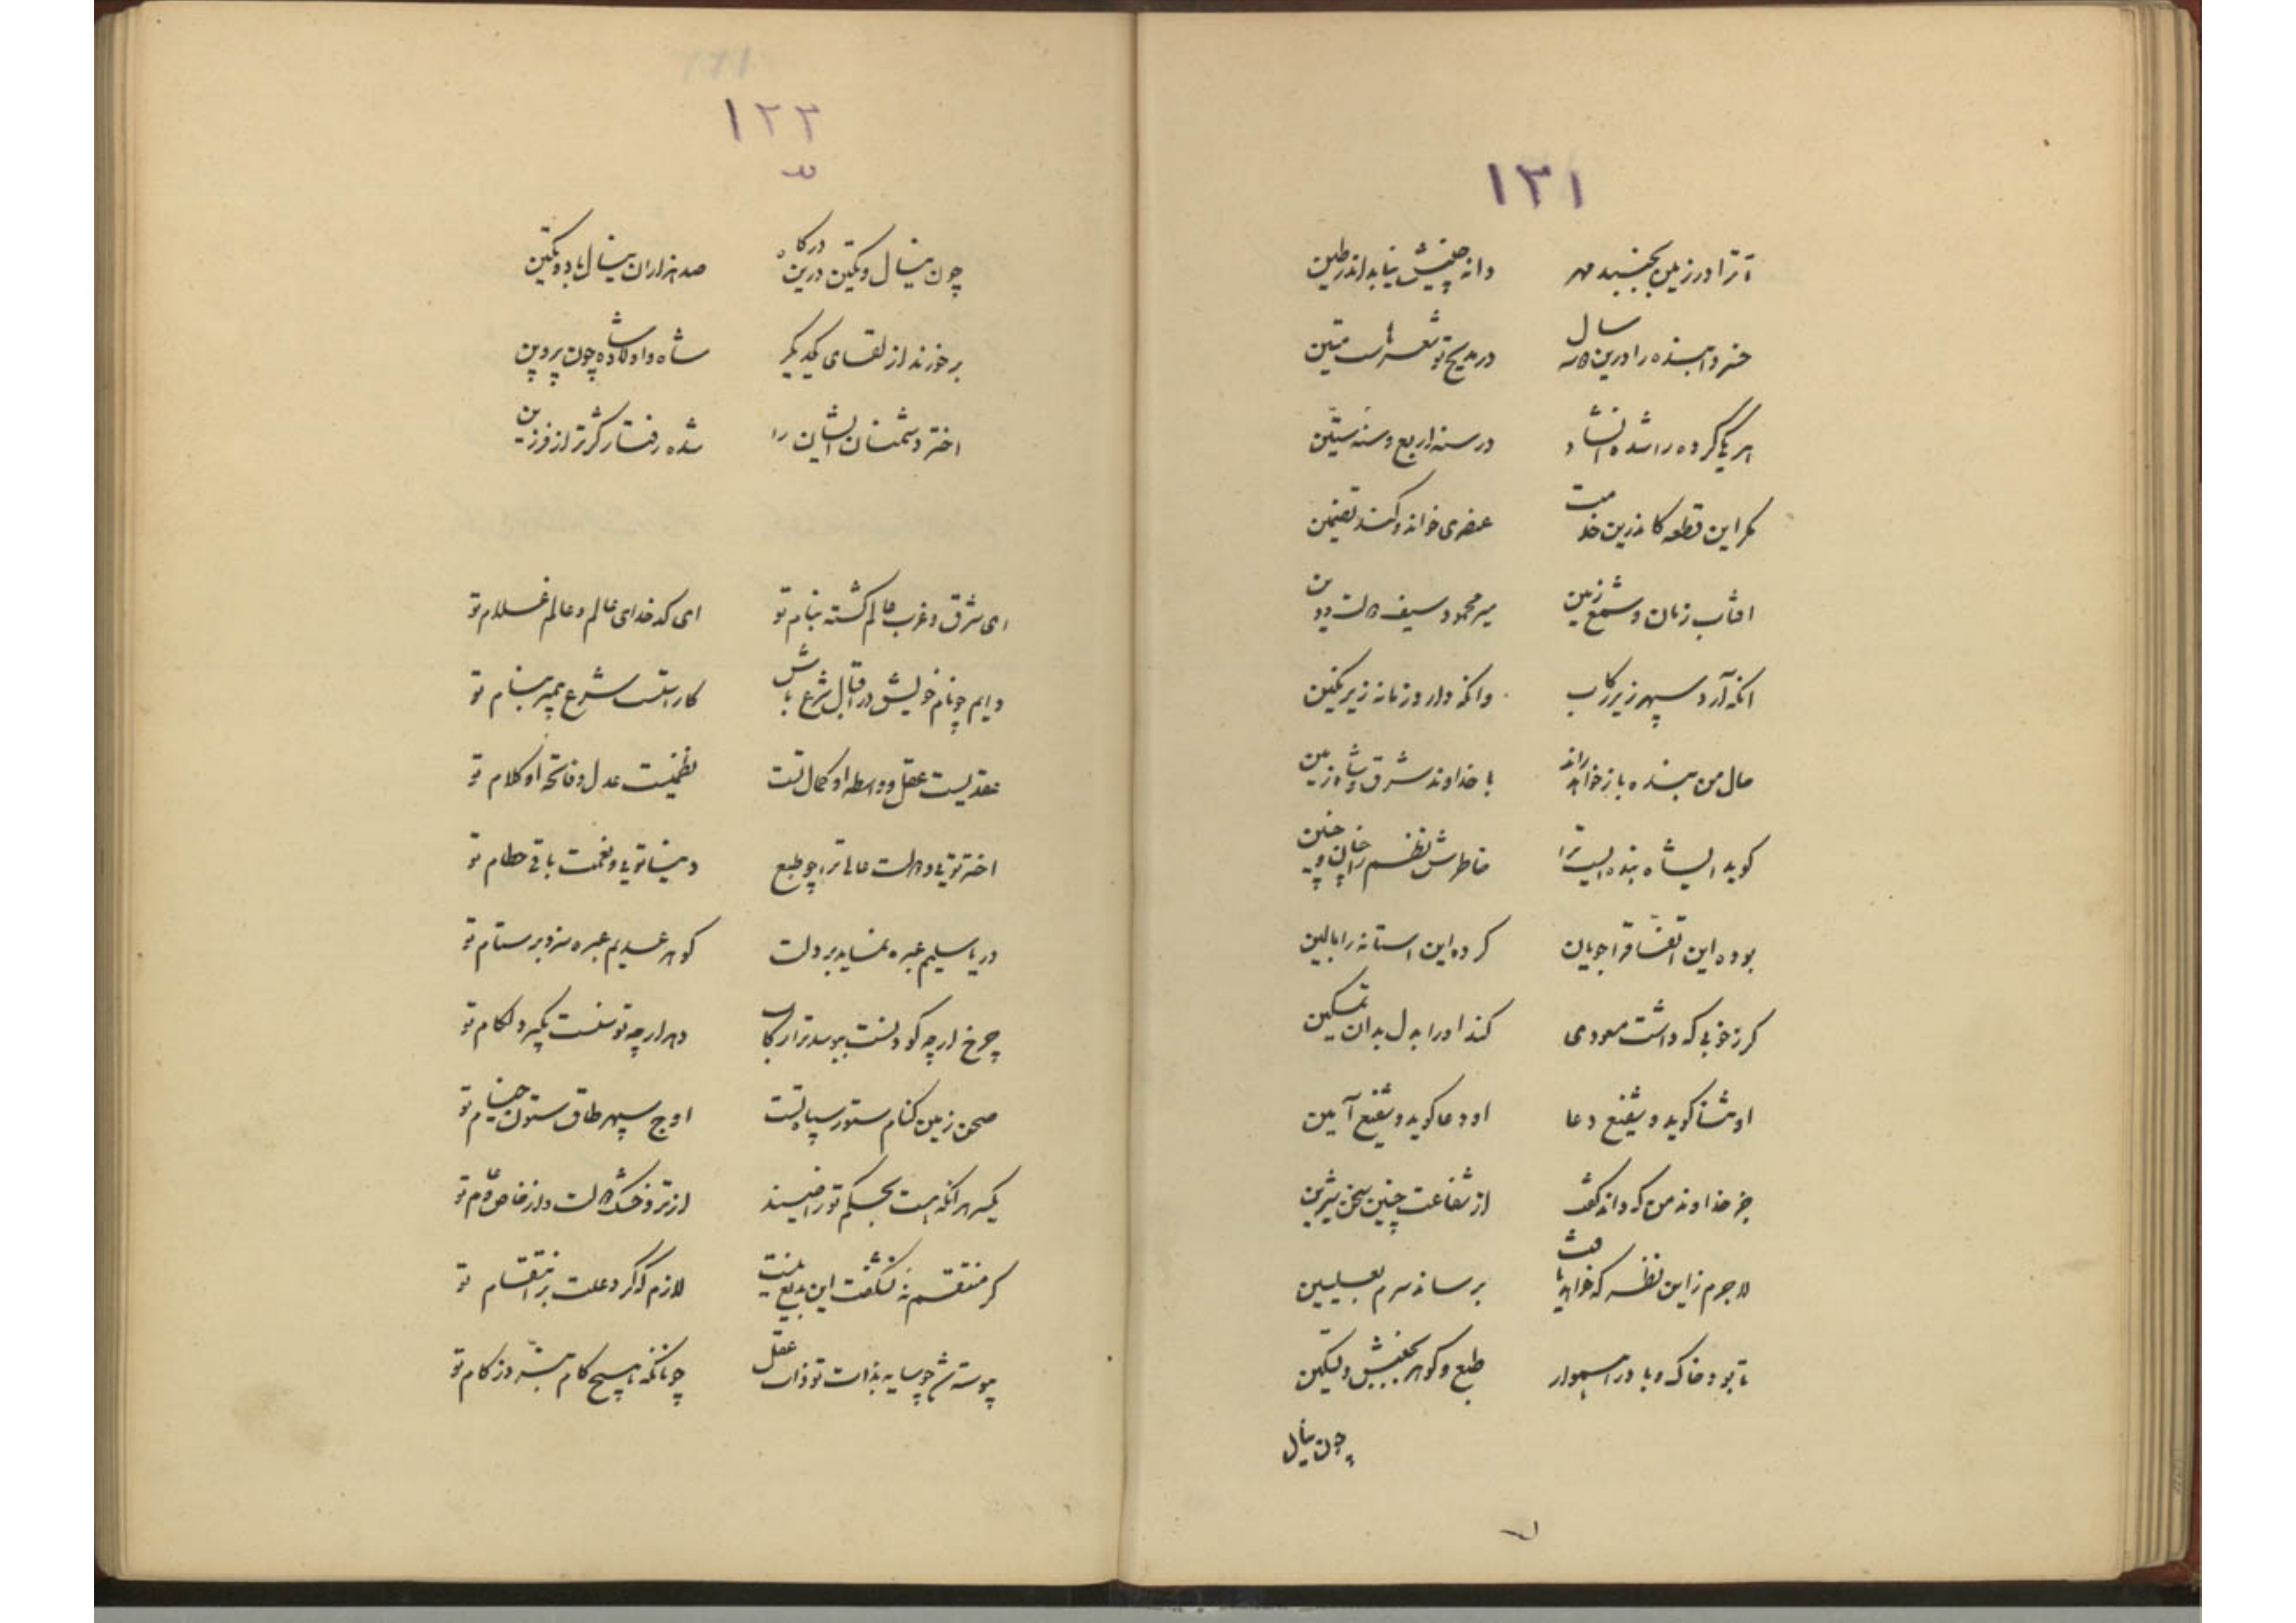 ۱۳۱
تا ترا در زمین بجنبد مهر دانه جنبش نیابد اندر طین
خسروا بنده را درین سال در مدیح تو شعرهاست متین
هر یکی کرده را شده انشاد در سنه اربع و سنه ستین
مگر این قطعه کاندرین خدمت عنصری خواند و کند تضمین
افتاب زمان و شمع زمین میر محمود سیف دولت و دین
انکه آرد سپهر زیر رکاب وانکه دارد زمانه زیر نکین
حال من بنده باز خواهد راند با خداوند شرق و شاه زمین
کوید ای شاه بنده ایست ترا خاطرش نظم را چنان و چنین
بوده این اتفاق را جویان کرده این استانه را بالین
کر زخوبی که داشت معودی کند او را بدل بدان تمکین
او ثنا کوید و شفیع دعا او دعا کوید و شفیع آمین
جز خداوند من که داند کفت از شفاعت چنین سخن شیرین
لاجرم زاین نظر که خواهد یافت برساند سرم بعلیین
تا بود خاک و باد را هموار طبع و کوهر بجنبش و تسکین
چون ینال
۱۲۲
چون ینال و تکین درین درکاه صد هزاران ینال باد و تکین
برخورند از لقای یکدیکر شاه و اولاد شاه چون پروین
اختر دشمنان ایشان را شده رفتار کژتر از فرزین
ای شرق و غرب عالم کشته بنام تو ای کدخدای عالم و عالم غلام تو
دایم چو نام خویش در اقبال شرع باش کاراستست شرع پیمبر بنام تو
عقدیست عقل و واسطه او کمال تست نظمیست عدل و فاتحه او کلام تو
اختر تویی و دولت عالی ترا چو طبع دنیا تویی و نعمت باقی حطام تو
دریا سلیم عبره نماید بر دلت کوهر عدیم عبره سزد بر ستام تو
چرخ ارچه کو دلست ببوسد ترا رکاب دهر ارچه توسنست بگیرد لکام تو
صحن زمین کنام ستور سپاه تست اوج سپهر طاق ستون خیام تو
یکسر هر انکه هست بحکم تو راضیند از تر و خشک دولت و از خاص و عام تو
کر منتقم نه شکفت این بدیع نیست لازم که کرد علت بر انتقام تو
پیوسته شد چو سایه بذات تو ذات عقل چونانکه هیچ کام نبرد ز کام تو